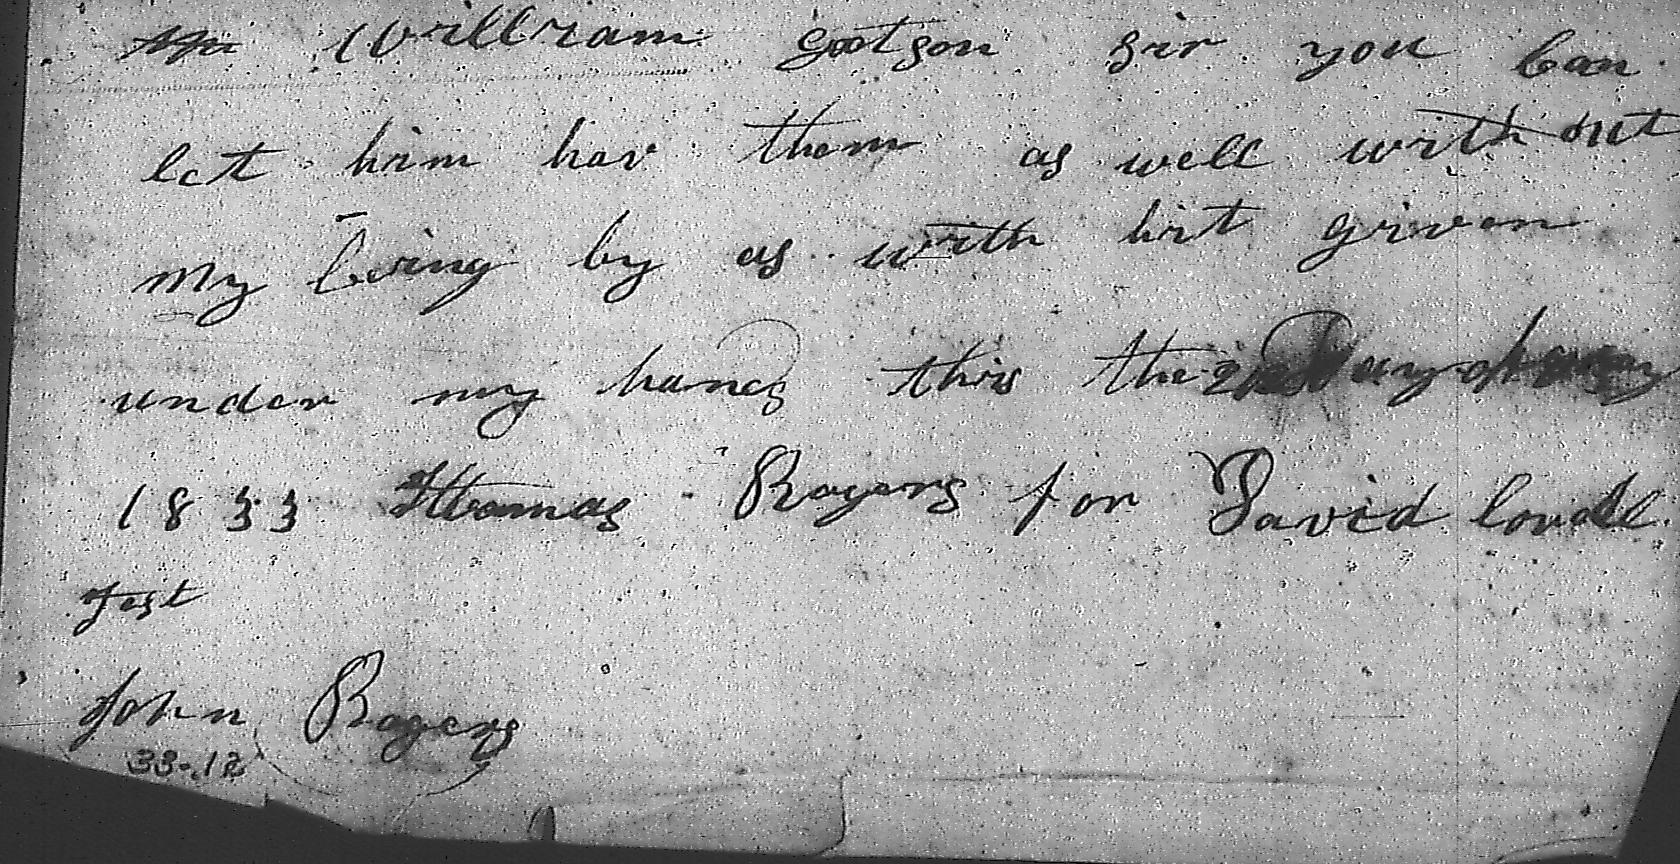 Mr William gotson sir you Can
let him hav them as well with out
my being by as with hit given
under my hands this the 2 Day of
1833 Thomas Rogers for David
Test
John Rogers
33-.12